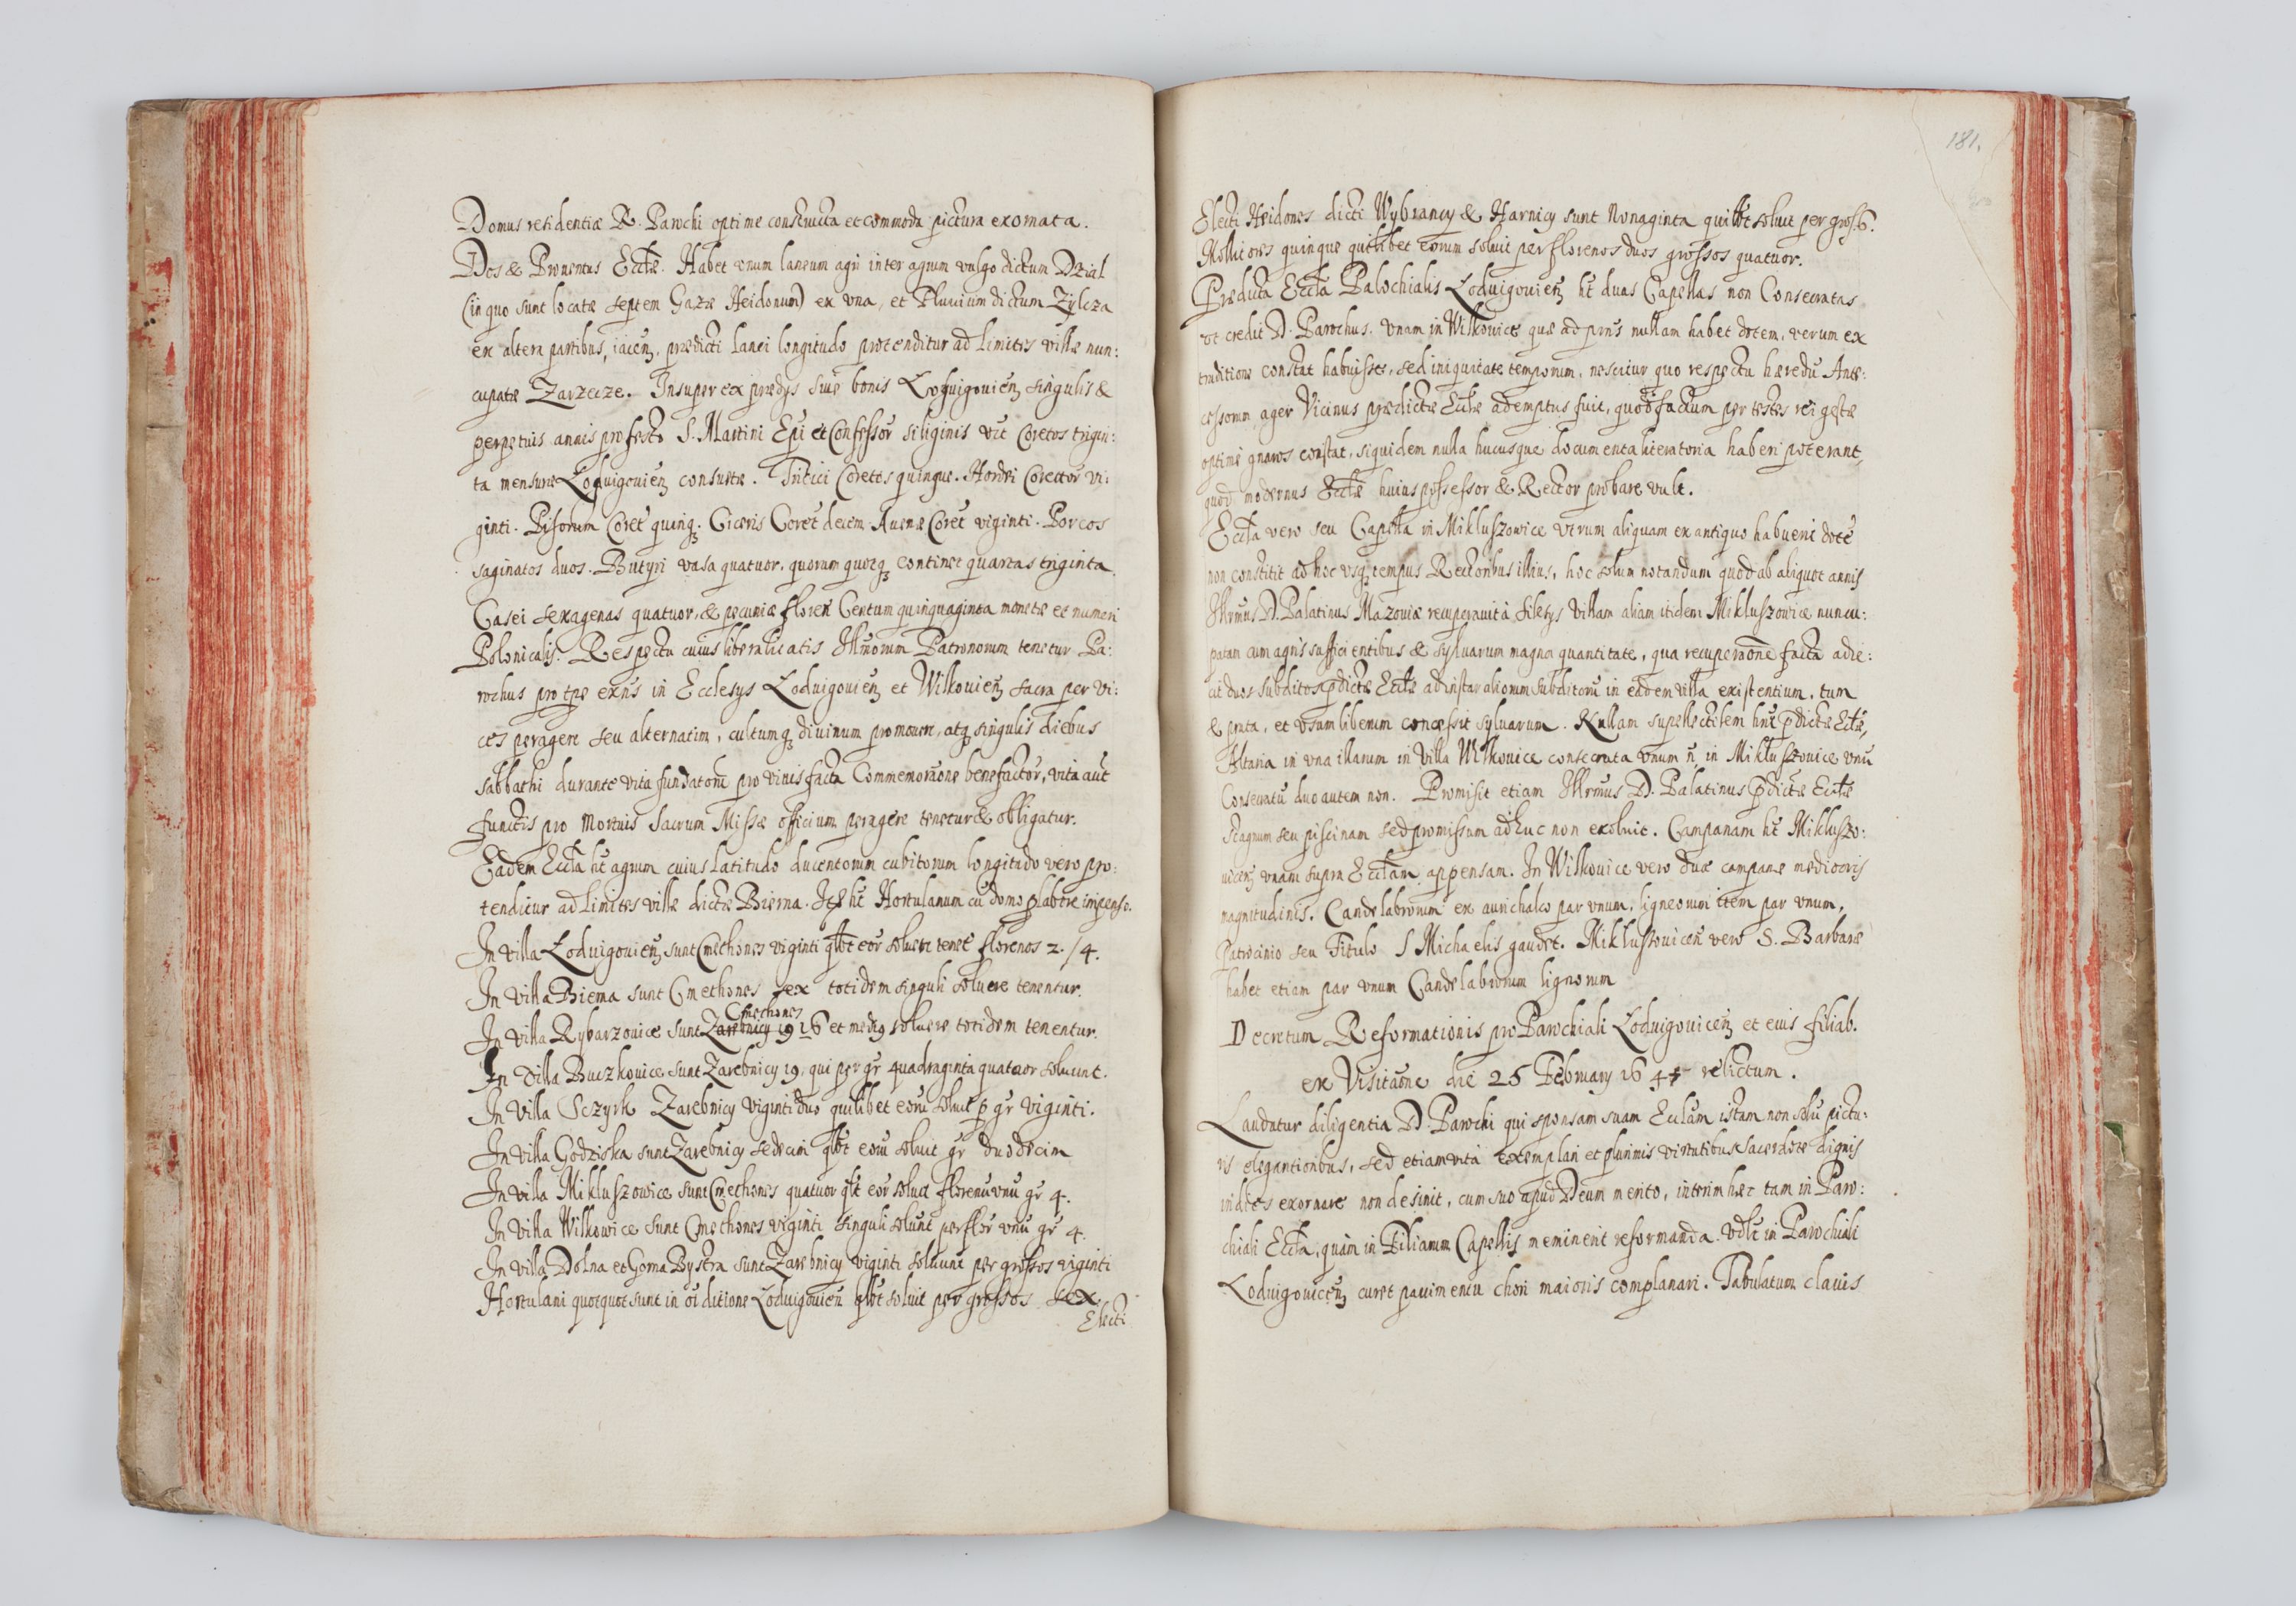 Domus residentiæ R. Parochi optime constructa et commoda pictura exornata.
Dos & Prouentus Eccłæ. Habet vnum laneum agri inter agrum vulgo dictum Dział
(in quo sunt locatæ septem Gazæ Heidonum) ex vna, et Fluuium dictum Zylcza
ex altera partibus, iacen. prædicti lanei longitudo protenditur ad limites villæ nun:
cupatæ Zarzecze. Insuper ex prædys siue bonis Lodvigouien singulis &
perpetuis annis pro festo S. Martini Epi et Confessor siliginis vit Coretos trigin:
ta mensuræ Lodvigouien consuetæ. Tritici Coretos quinque. Hordei Coretos vi:
ginti. Pisorum Coret quinq. Ciceris Coret decem. Auenæ Coret viginti. Porcos
saginatos duos. Butyri vasa quatuor, quorum quodq continet quartas triginta.
Casei sexagenas quatuor, & pecuniæ floren Centum quinquaginta monetæ et numeri
Polonicalis. Respectu cuius liberalitatis Illmorum Patronorum tenetur Pa:
rochus pro tpe exns in Ecclesys Lodvigouien et Wilkouien sacra per vi:
ces peragere seu alternatim, cultumq diuinum promouere, atq singulis diebus
sabbathi durante vita fundatorum pro viuis facta Commemoraõne benefactor, vita aut
functis pro Mortuis Sacrum Missæ officium peragere tenetur & obligatur.
Eadem Eccła ht agrum cuius latitudo ducentorum cubitorum longitudo vero pro:
tenditur ad limites villæ dictæ Bierna. Itẽ ht Hortulanum cũ domo impenso.
In villa Lodvigouien sunt Cmethones viginti qlbt eor soluere tenet florenos 2./4.
In villa Bierna sunt Cmethones sex totidem singuli soluere tenentur.
Cmethones
In villa Rybarzouice sunt Zarebnicy 19 16 et medig soluere totidem tenentur.
In villa Buczkouice sunt Zarebnicy 19, qui per gr quadraginta quatuor soluunt.
In villa Sczyrk Zarebnicy viginti duo quilibet eorũ soluit p gr viginti.
In villa Godziska sunt Zarebnicy sedecim qlbt eorũ soluit gr duodecim
In villa Mikluszowice sunt Cmethones quatuor qlbt eor soluit florenũ vnũ gr 4.
In villa Wilkowice sunt Cmethones viginti singuli soluunt per flor vnũ gr 4.
In villa Dolna et Gorna Bystra sunt Zarebnicy viginti soluunt per grossos viginti
Hortulani quotquot sunt in oi ditione Lodvigouien qlbt soluit per grossos sex.
Electi
181.
Electi Heidones dicti Wybrancy & Harnicy sunt Nonaginta quilbt soluit per gros. 6.
Molitores quinque quilibet eorum soluit per florenos duos grossos quatuor.
Prædicta Eccła Parochialis Lodvigouien ht duas Capellas non Consecratas
vt credit D. Parochus. Vnam in Wilkouice quæ ad præns nullam habet dotem, verum ex
traditione constat habuisse, sed iniquitate temporum, nescitur quo respectu hæredũ Ante:
cessorum ager Vicinus prædictæ Eccłæ ademptus fuit, quod factum per testes rei gestæ
optime gnaros constat, siquidem nulla hucusque documenta literatoria haberi poterant,
quod modernus Eccłæ huius possessor & Rector probare vult.
Eccła vero seu Capella in Mikluszowice vtrum aliquam ex antiquo habuerit dotẽ
non constitit ad hoc vsq tempus Rectoribus illius, hoc solum notandum quod ab aliquot annis
Illrmus D. Palatinus Mazoviæ recuperauit à Silesys Villam aliam itidem Mikluszowice nuncu:
patam cum agris sufficientibus & syluarum magna quantitate, qua recuperaõne facta adie:
cit duos subditos prdictæ Eccłæ ad instar aliorum subditorũ in eadem villa existentium, tum
& prata, et vsum liberum concessit syluarum. Nullam supellectilem hnt prdictæ Eccłæ,
Altaria in vna illarum in villa Wilkouice consecrata vnum ñ, in Mikluszouice vnũ
Consecratũ duo autem non. Promisit etiam Illrmus D. Palatinus prdictæ Eccłæ
stagnum seu piscinam sed promissum adhuc non exoluit. Campanam ht Mikluszo:
uicen vnam supra Eccłam appensam. In Wilkouice vero duæ campanæ mediocris
magnitudinis. Candelabrorum ex aurichalco par vnum, ligneorum item par vnum,
Patrocinio seu Titulo S Michaelis gaudet. Mikluszouicen vero S. Barbaræ
habet etiam par vnum Candelabrorum lignorum
Decretum Reformationis pro Parochiali Lodvigouicen et eius filiab.
ex Visitaõne die 25 February 1644 relictum.
Laudatur diligentia D. Parochi qui sponsam suam Eccłam istam non solũ pictu:
ris elegantioribus, sed etiam vita exemplari et plurimis virtutibus Sacerdote dignis
indies exornare non desinit, cum suo apud Deum merito, interim hæc tam in Paro:
chiali Eccła, quàm in Filiarum Capellis meminerit reformanda. Vdlt in Parochiali
Lodvigouicen curet pauimentũ chori maioris complanari. Tabulatum clauis